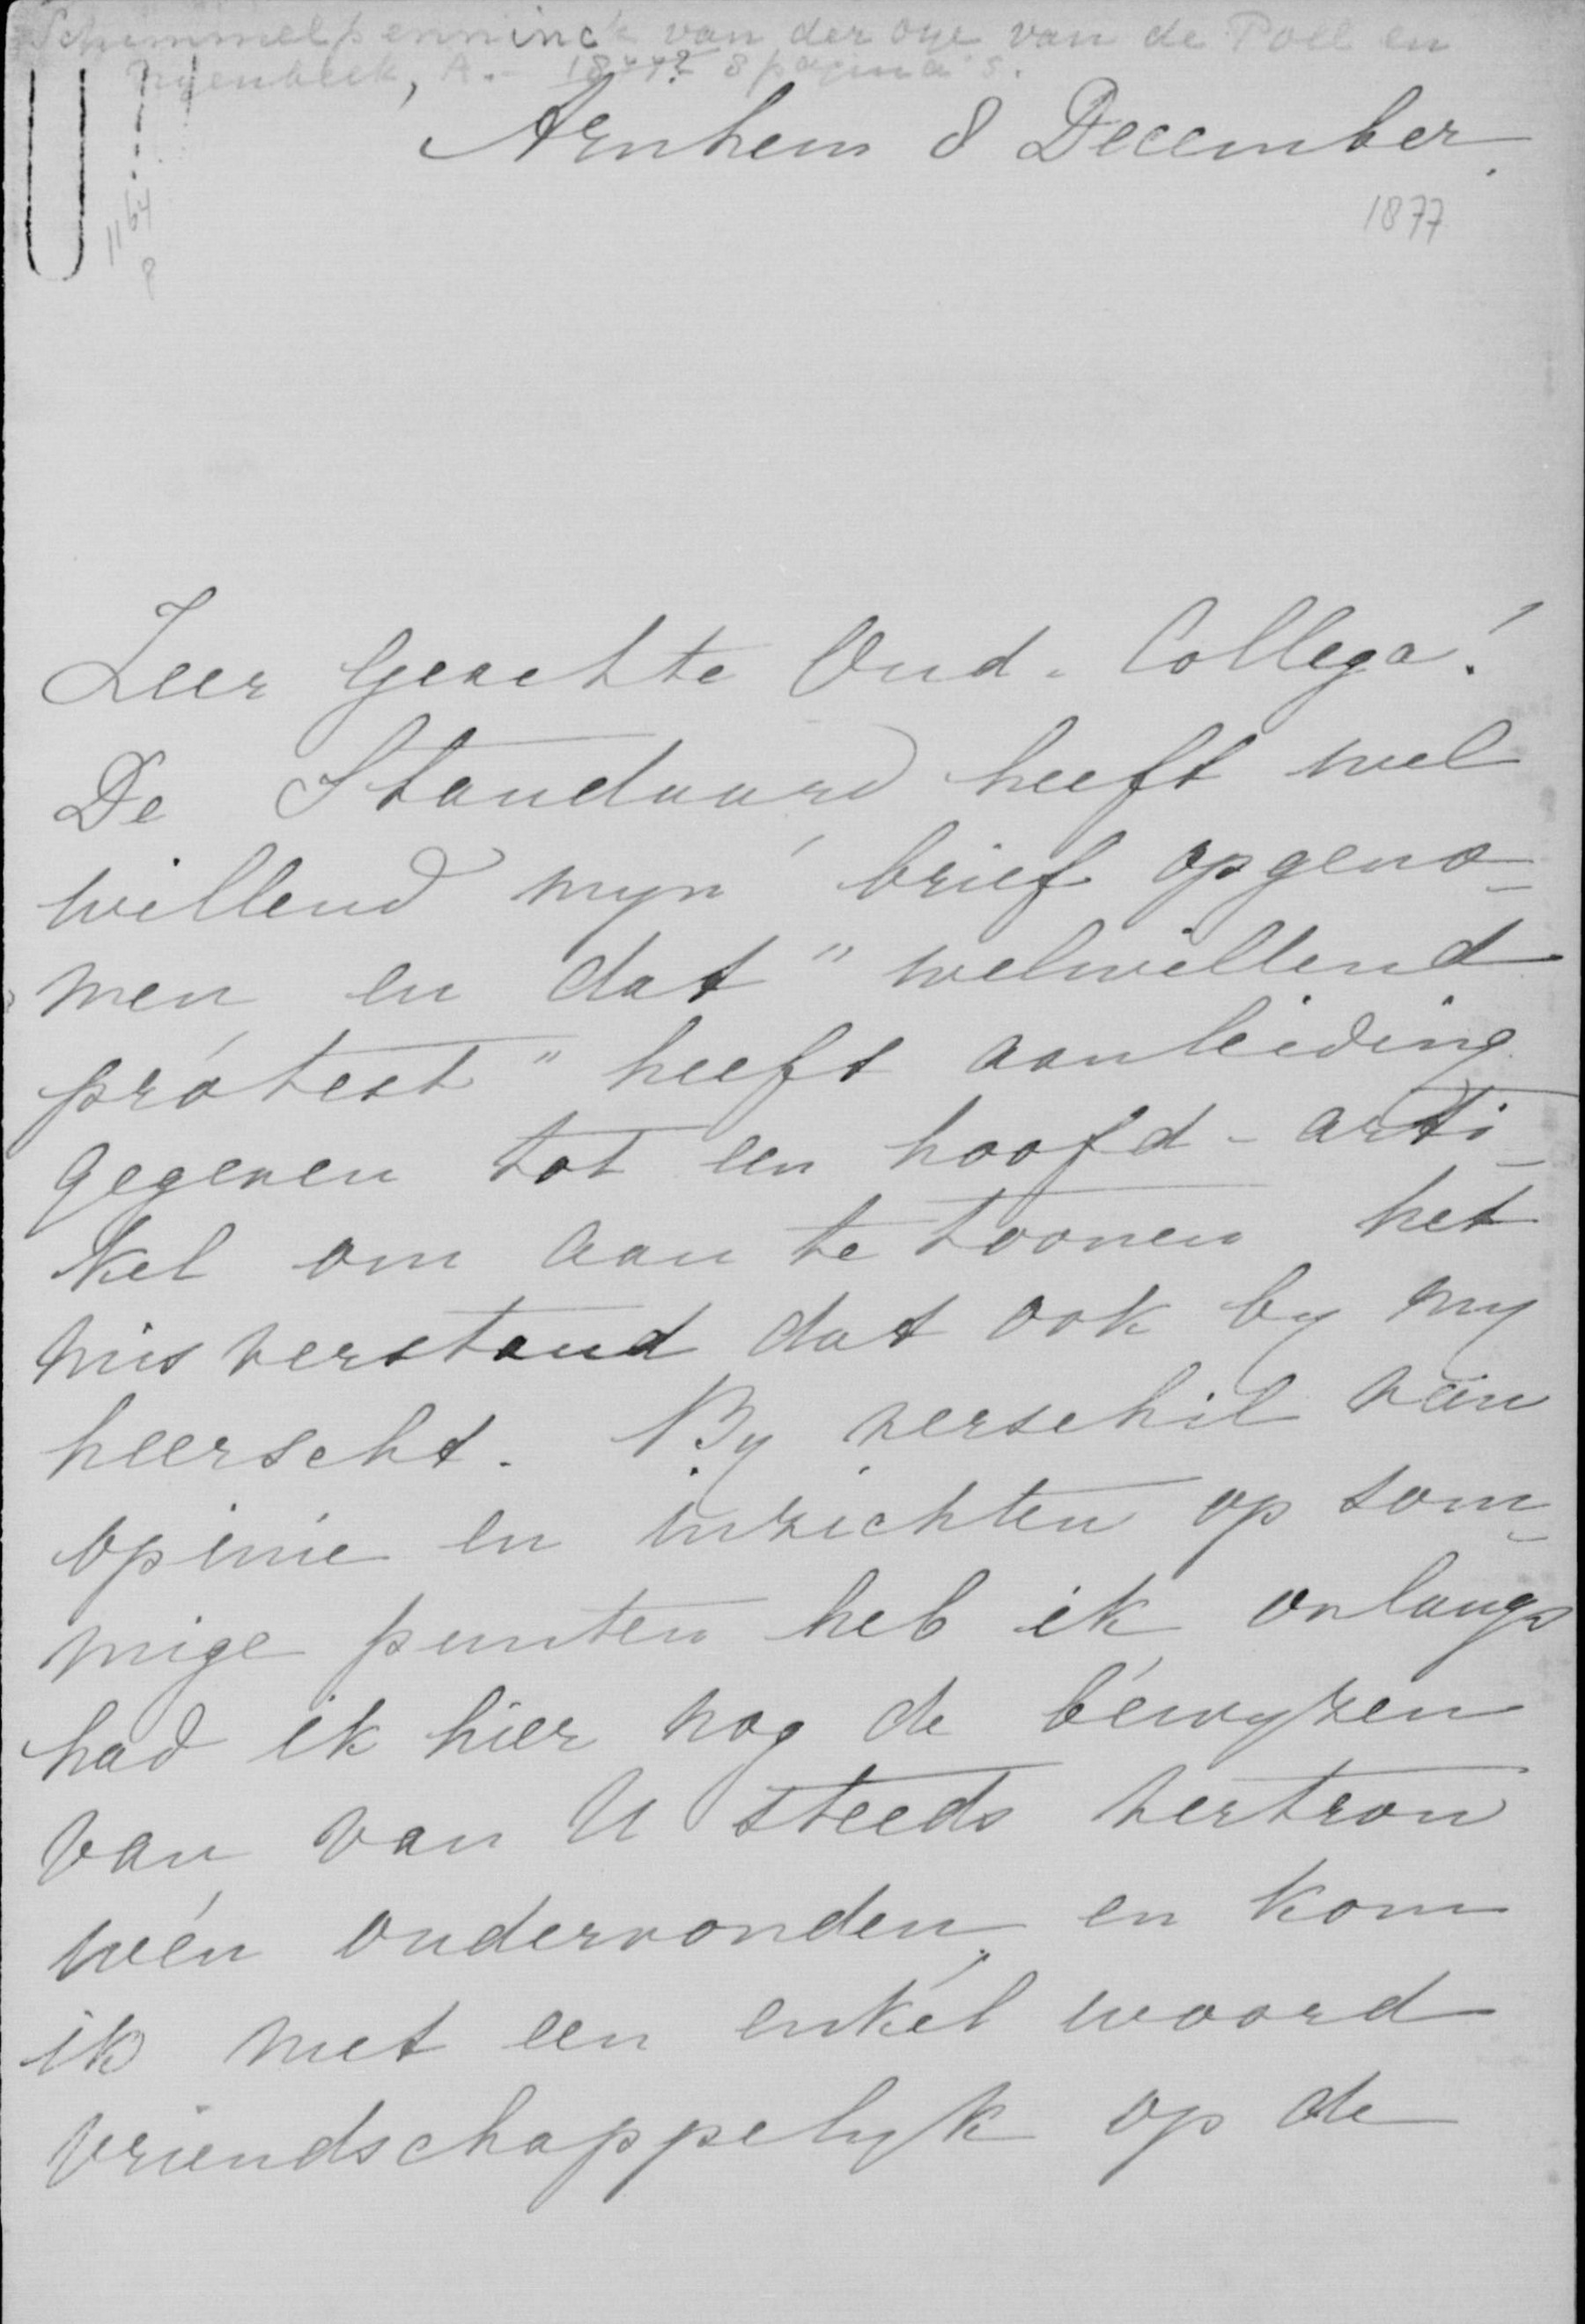 Schimmelpenninck van der oye van de Poll en
Nyenbeek, A. - 1877? 8 pagina's.
Arnhem 8 December
1877
1164
P
Zeer Geachte Oud-Collega!
De Standaard heeft wel
willend myn brief opgeno-
men en dat "welwillend
protest" heeft aanleiding
gegeven tot een hoofd-arti-
kel om aan te toonen het
misverstand dat ook by my
heerscht. By verschil van
opinie en inzichten op som-
mige punten heb ik onlangs
had ik hier nog de bewyzen
van van U steeds vertrou
wen ondervonden en kom
ik met een enkel woord
vriendschappelyk op de